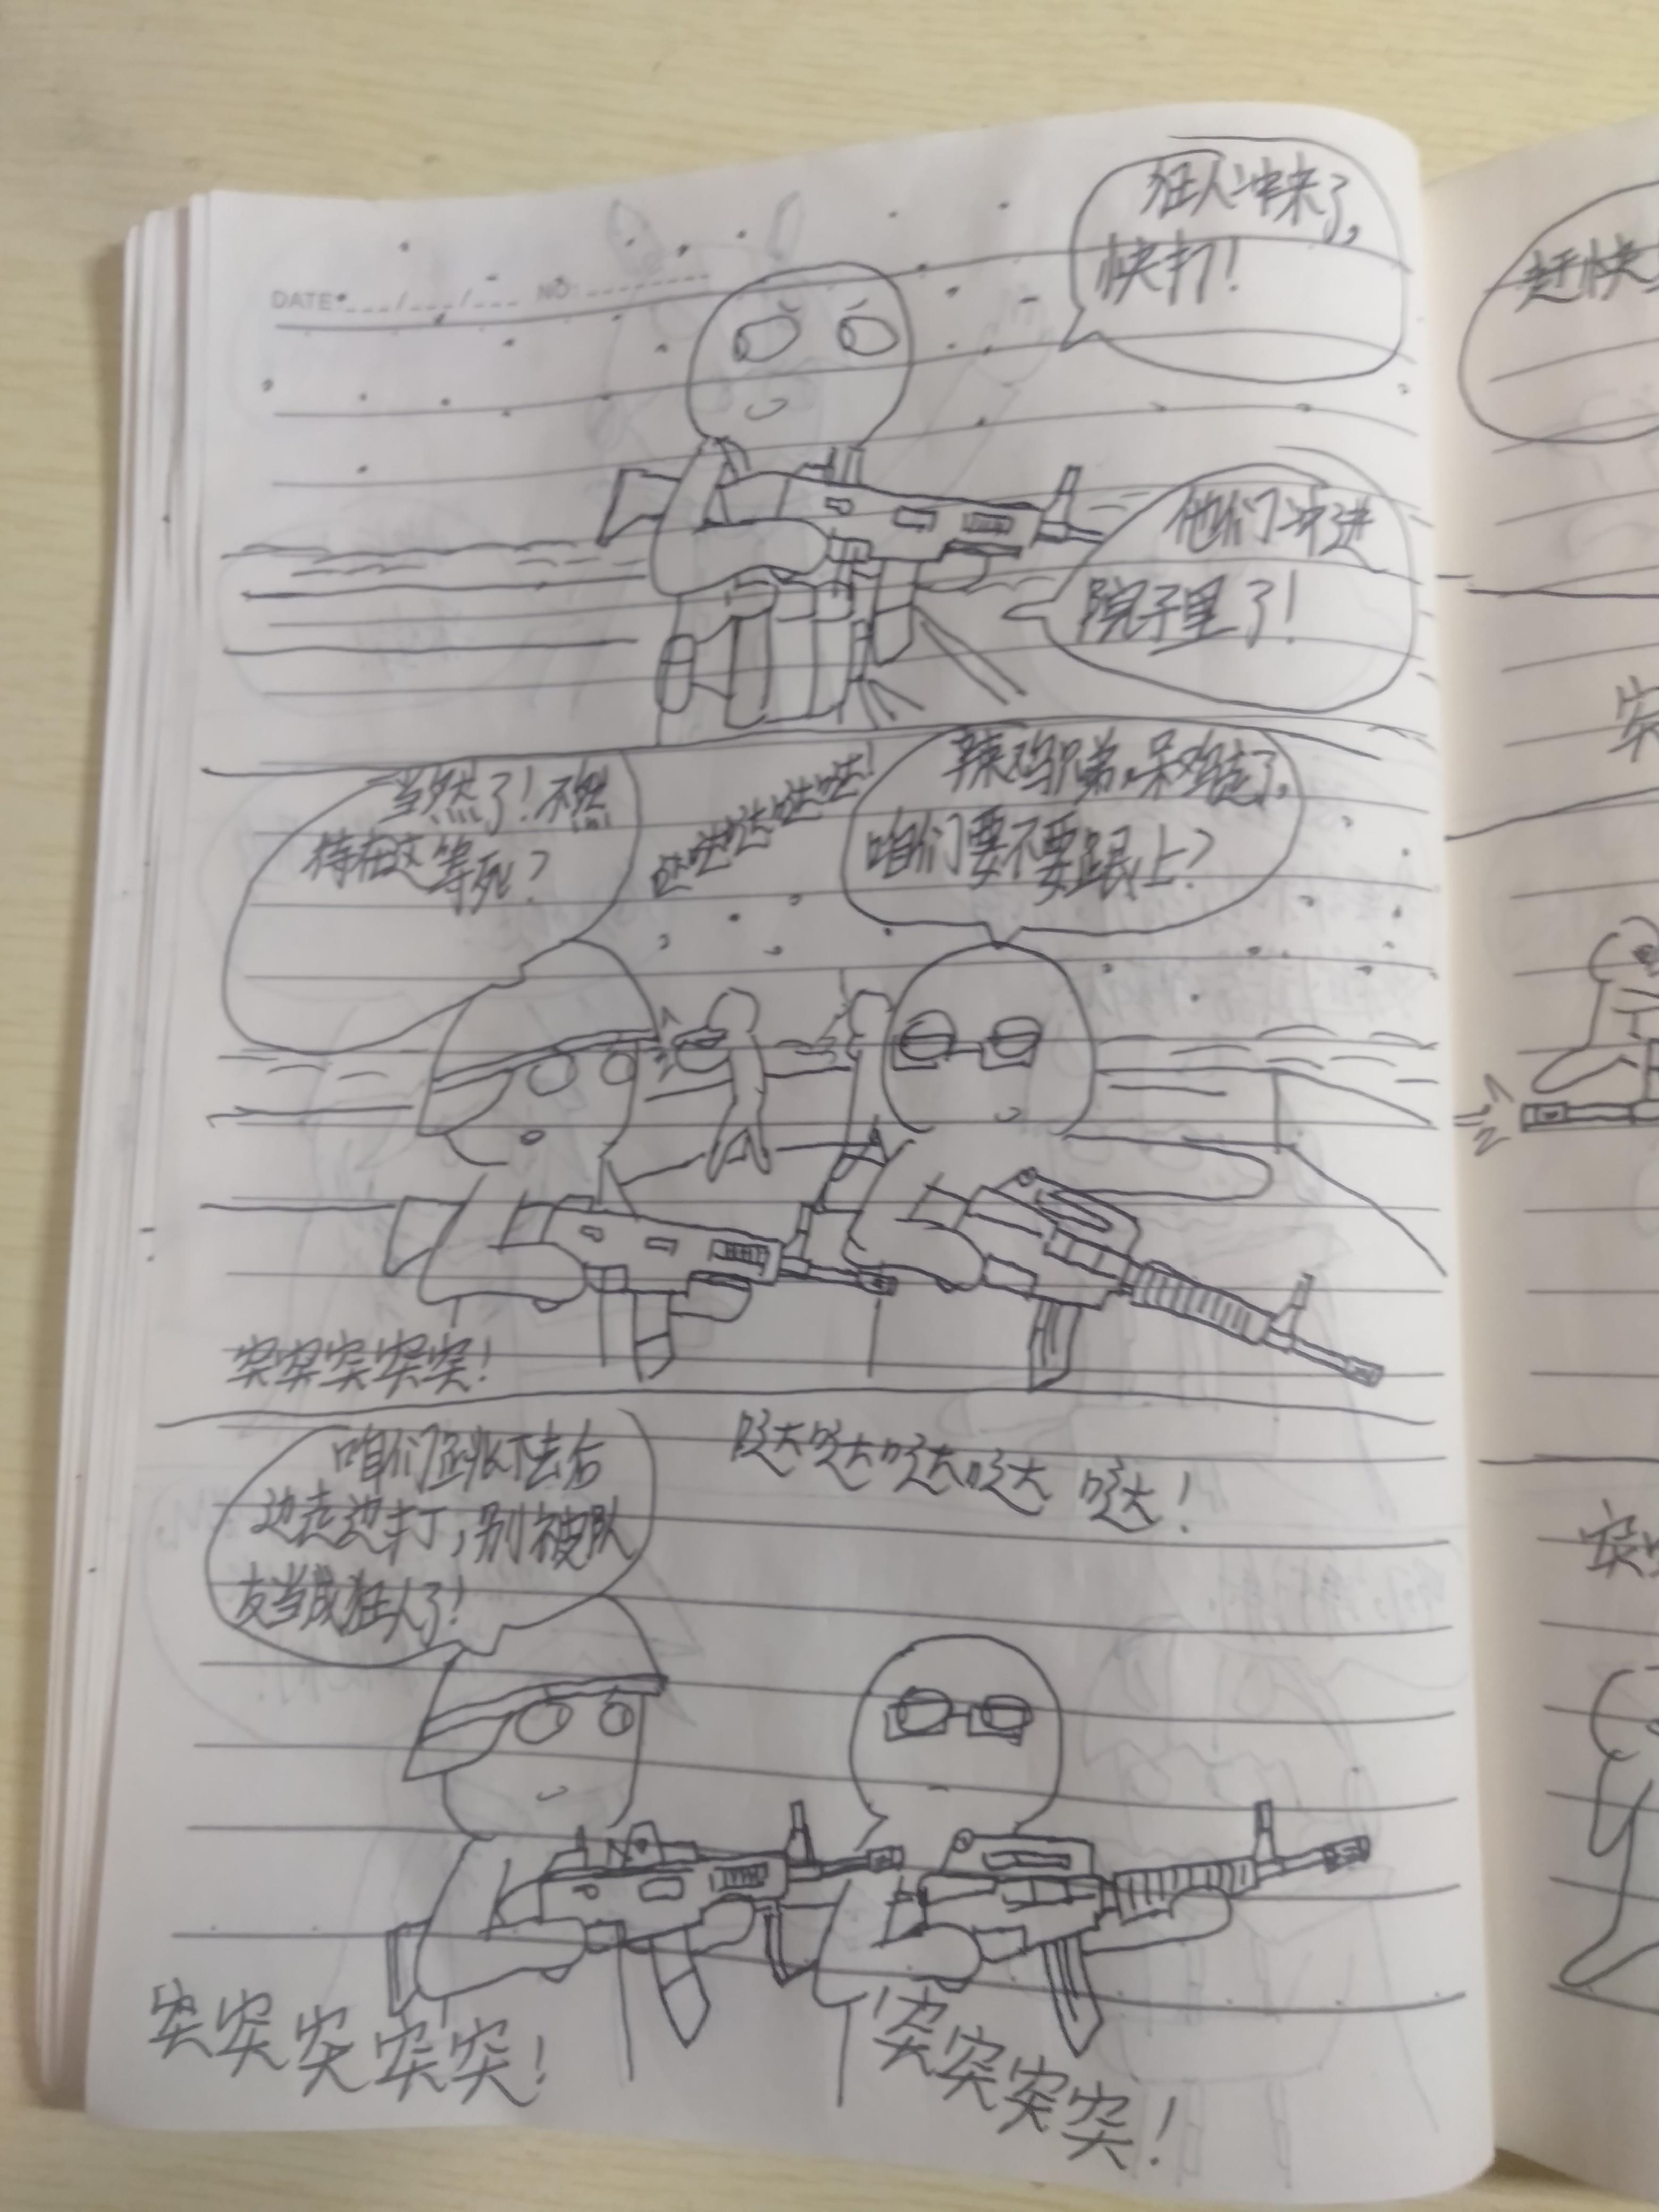 DATE ___/___/___ NO.
狂人冲来了,
快打!
他们冲进
院子里了!
当然了!不然
待在这等死?
哒哒哒哒哒!
辣鸡兄弟,呆鸡走了,
咱们要不要跟上?
突突突突突!
咱们跳下去后
边走边打,别被队
友当成狂人了!
哒哒哒哒哒!
突突突突突!
突突突突突!
赶快
突
突突